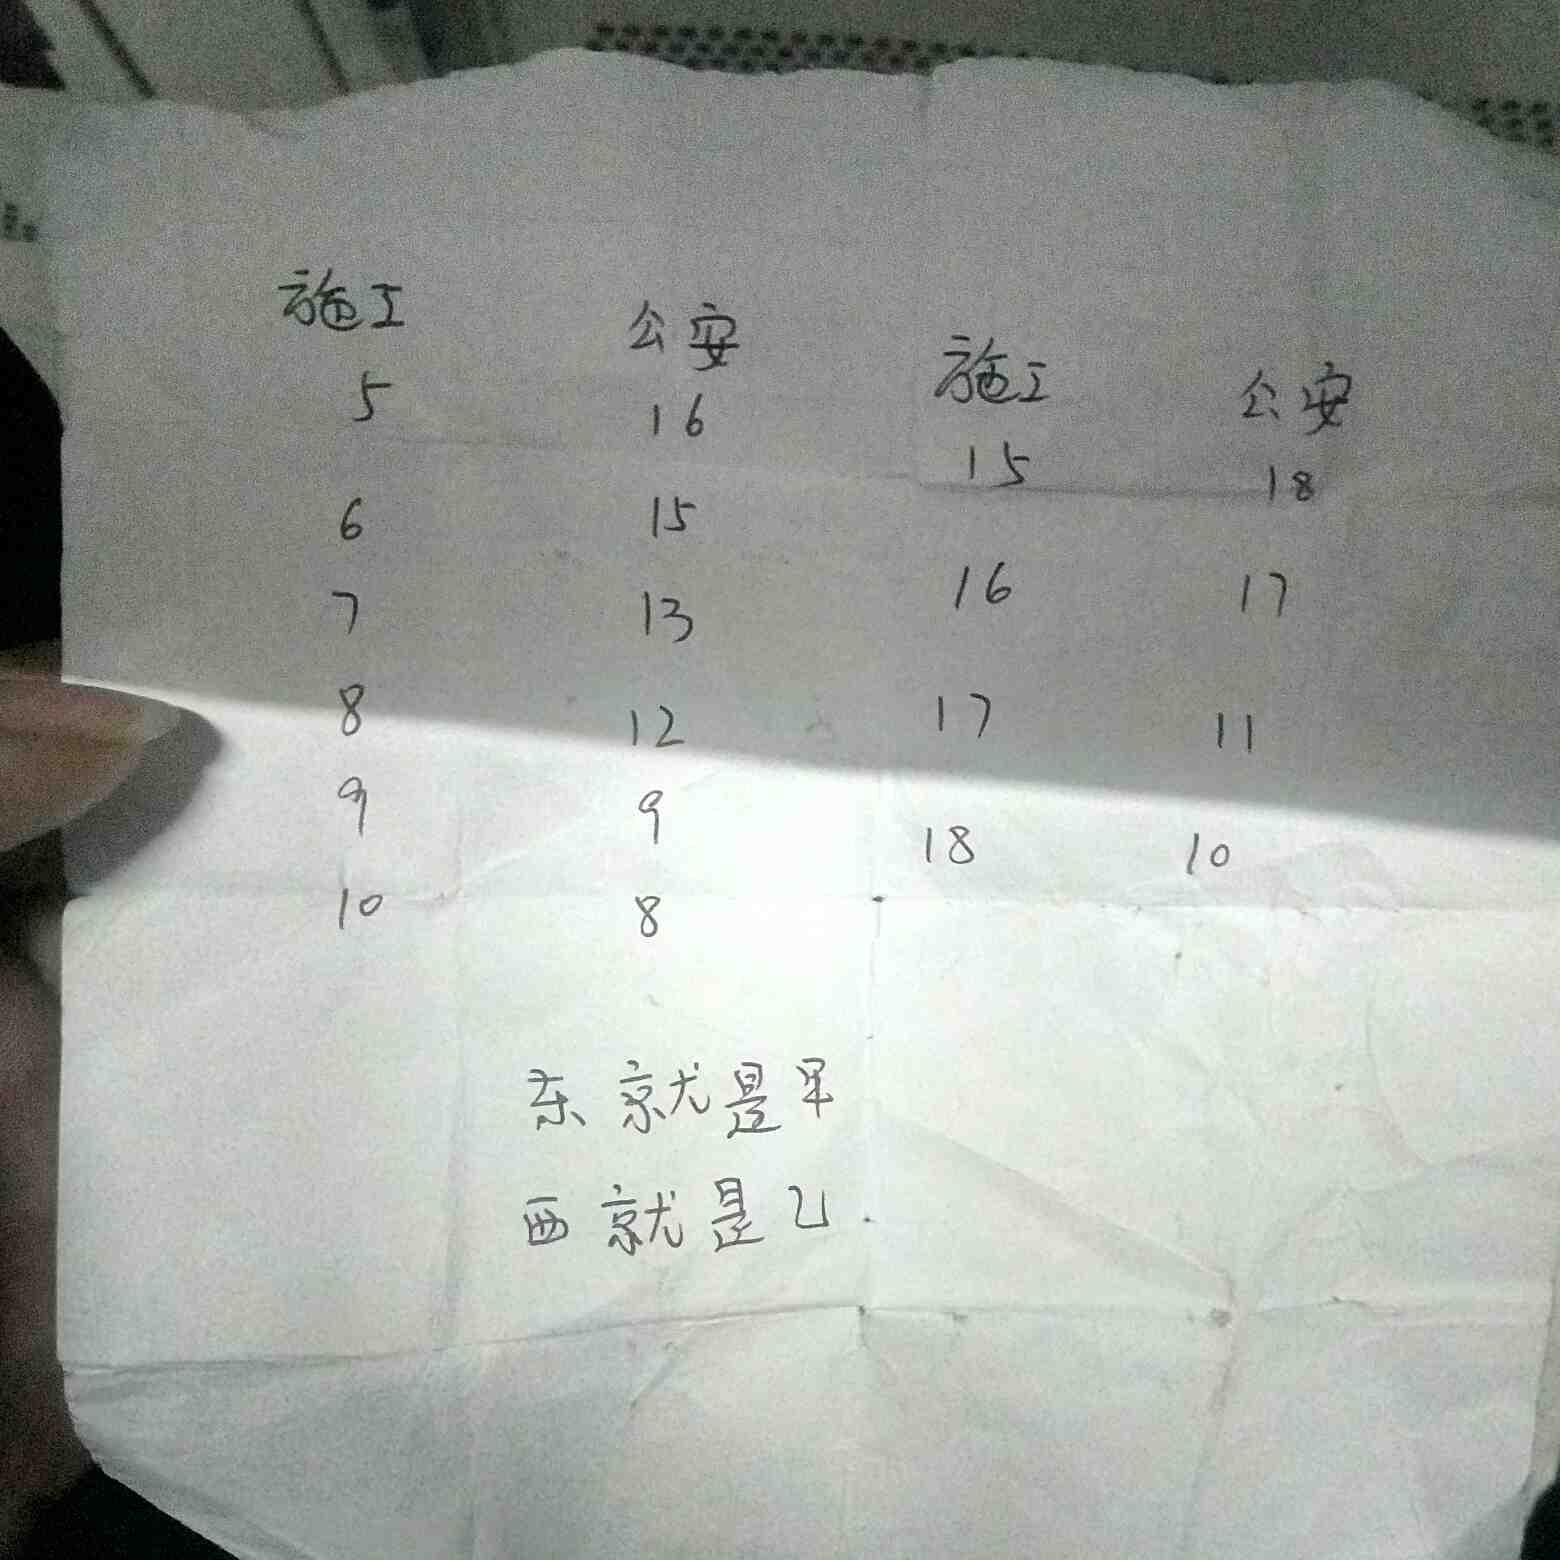 施工 公安 施工 公安
5 16 15 18
6 15 16 17
7 13 17 11
8 12 18 10
9 9
10 8
东就是甲
西就是乙